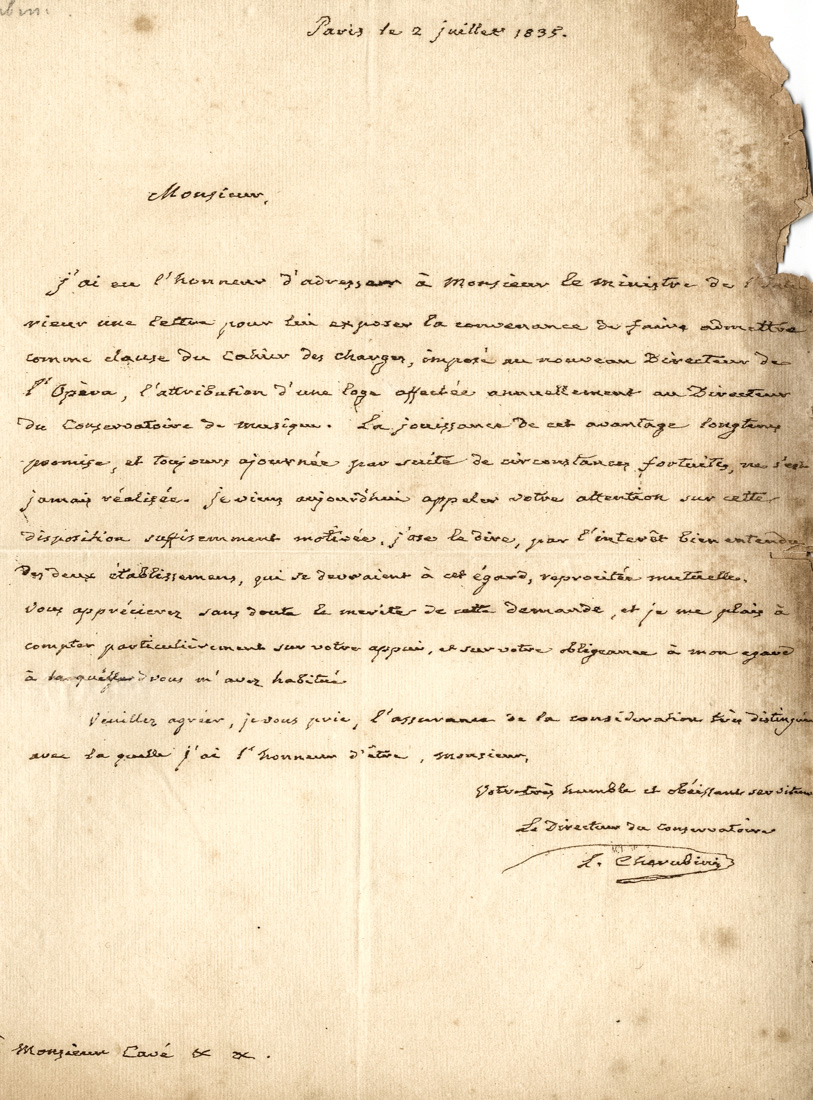 Paris le 2 juillet 1835.
Monsieur,
j'ai eu l'honneur d'adresser à Monsieur le ministre de l'Inté
rieur une lettre pour lui exposer la convenance de faire admettre
comme clause du Cahier des charges, imposé au nouveau Directeur de
l'Opèra, l'attribution d'une loge affectée annuellement au Directeur
du Conservatoire de musique. La jouissance de cet avantage longtems
promise, et toujours ajournée par suite de circonstances fortuites, ne s'est
jamais réalisée. je viens aujourd'hui appeler votre attention sur cette
disposition suffisemment motivée, j'ose le dire, par l'interêt bien entendu
des deux établissemens, qui se devraient à cet égard, reprocitée mutuelle.
vous apprécierez sans doute le merite de cette demande, et je me plais à
compter particulièrement sur votre appui, et sur votre obligeance à mon egard
à laquelle vous m'avez habitué
Veuillez agréer, je vous prie, l'assurance de la considération très distinguée
avec la quelle j'ai l'honneur d'être, Monsieur,
Votre très humble et obéissant serviteur
Le Directeur du conservatoire
L. Cherubini
Monsieur Cavé & &.